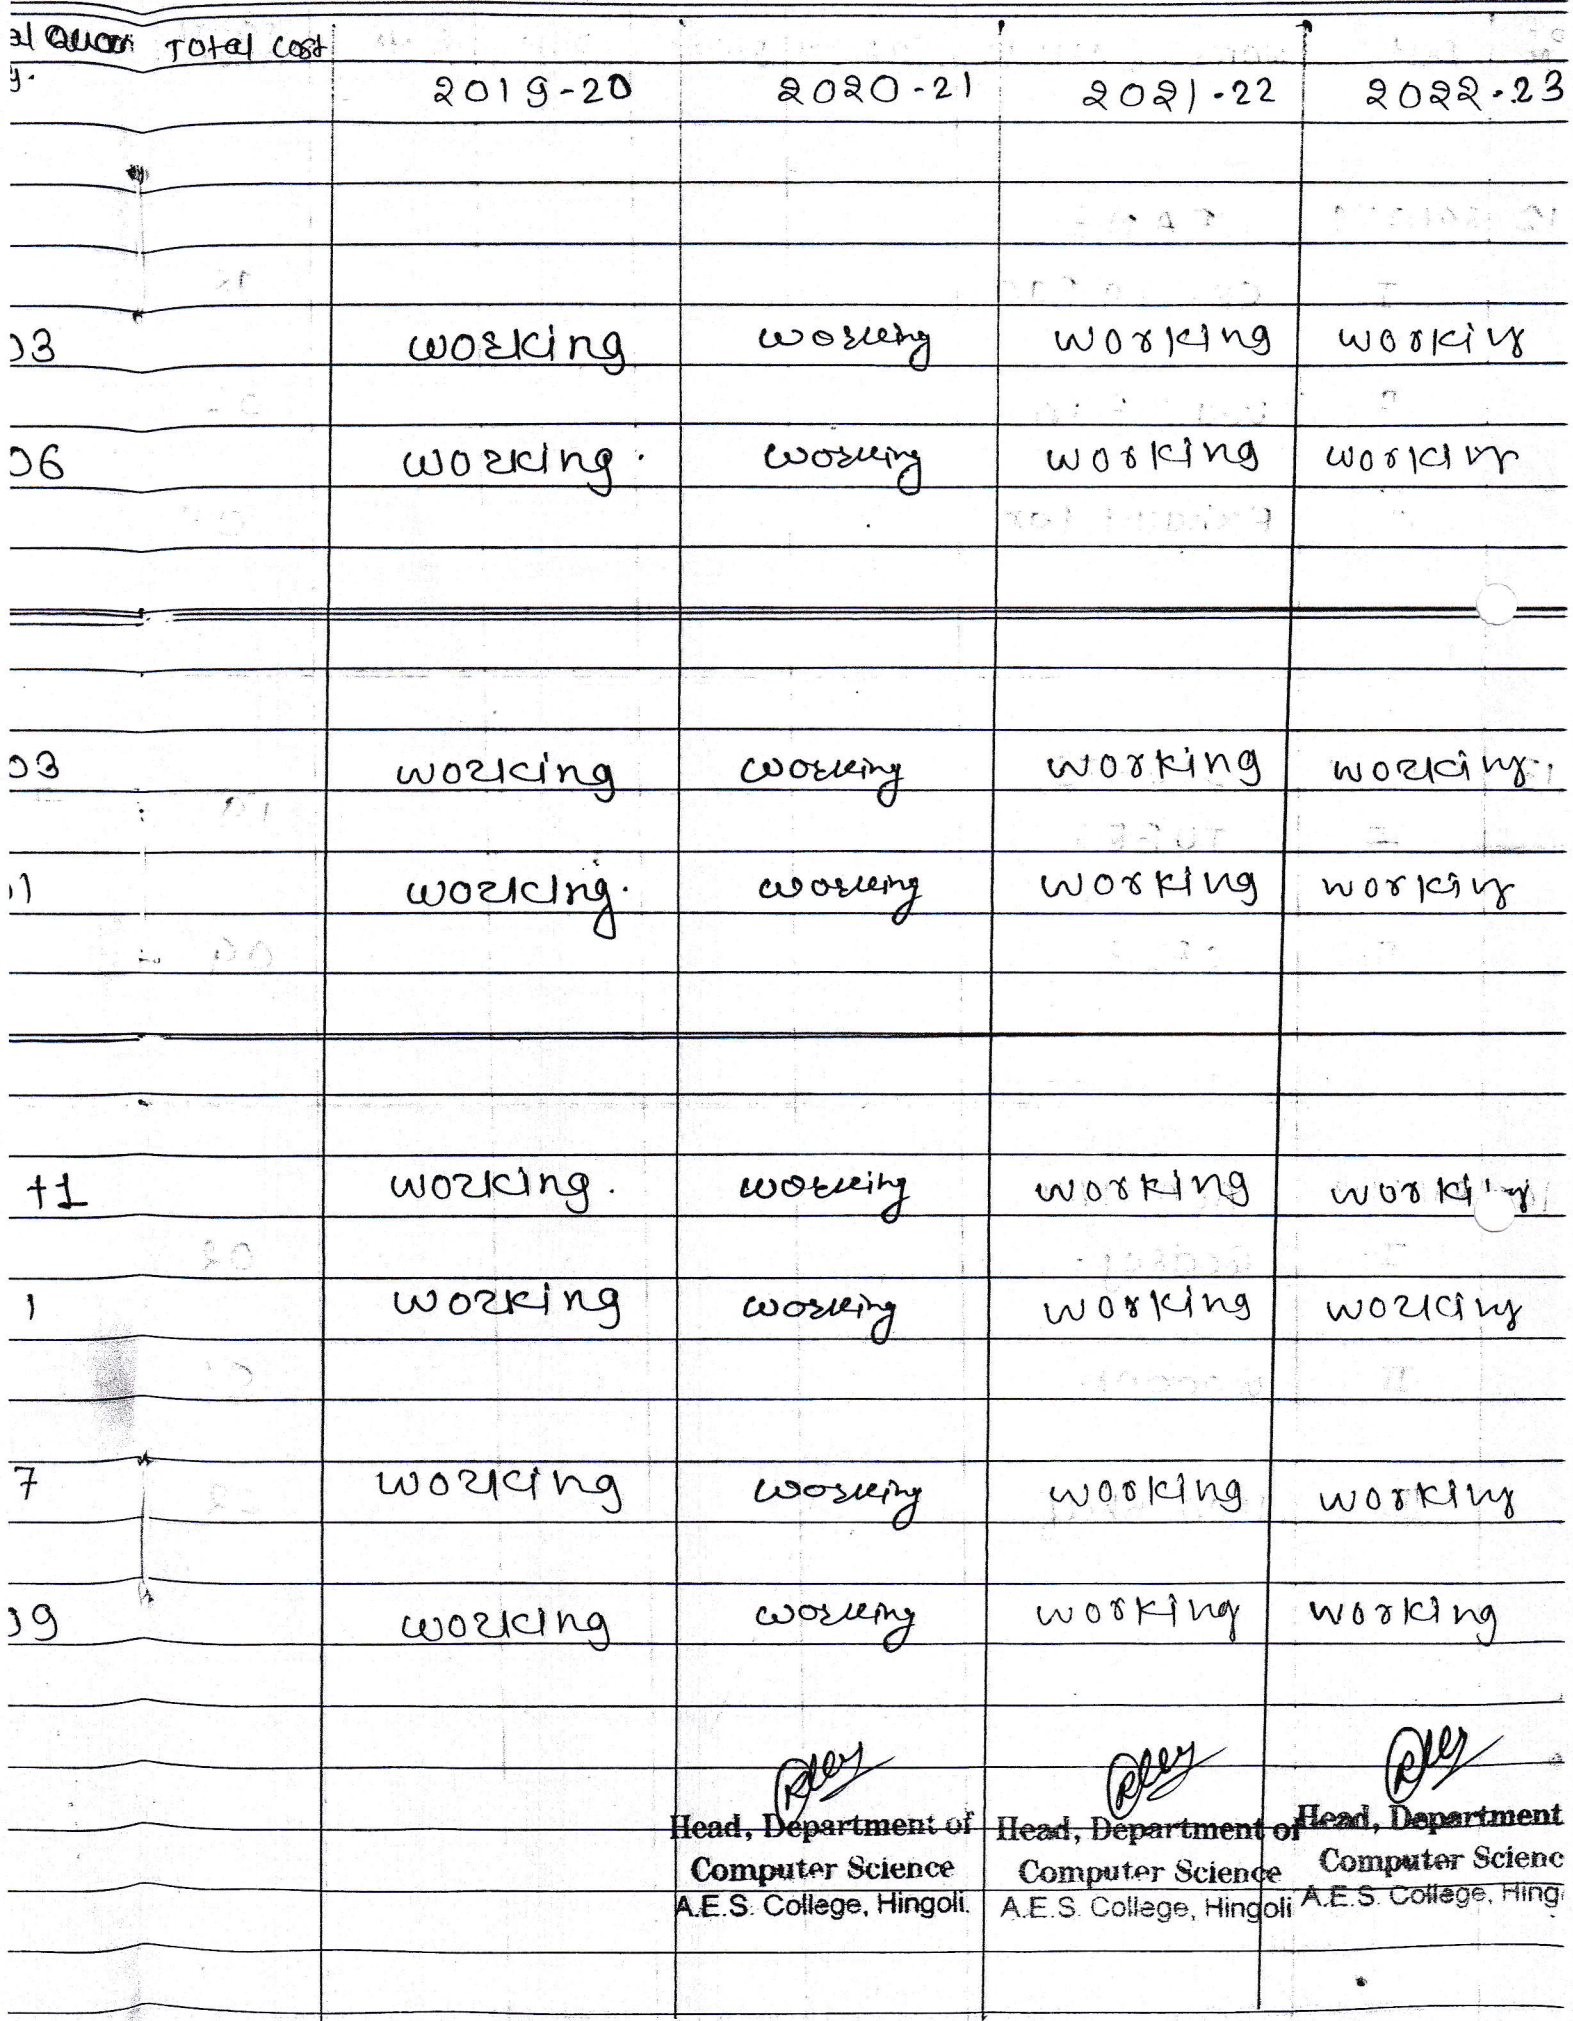 Total Cost
y. 2019-20 2020-21 2021-22 2022-23
03 working working working working
06 working. working working working
03 working working working working.
01 working. working working working
+1 working. working working working
1 working working working working
7 working working working working
09 working working working working
Head, Department of Head, Department of Head, Department
Computer Science Computer Science Computer Scienc
A.E.S. College, Hingoli. A.E.S. College, Hingoli A.E.S. College, Hing